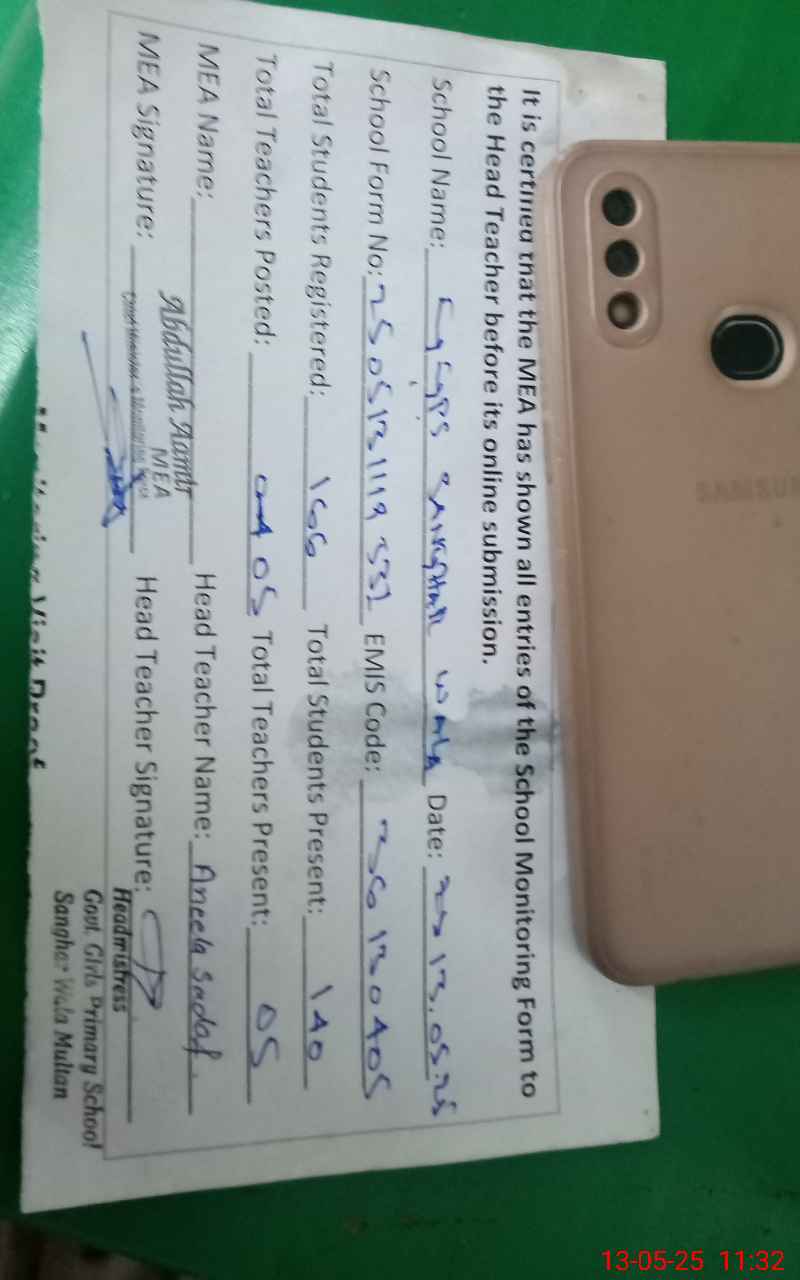 It is certified that the MEA has shown all entries of the School Monitoring Form to
the Head Teacher before its online submission.
School Name: GGPS SANGHAR WALA Date: 13.05.25
School Form No: 2505131119532 EMIS Code: 36130405
Total Students Registered: 166 Total Students Present: 140
Total Teachers Posted: 05 Total Teachers Present: 05
MEA Name: Abdullah Aamir Head Teacher Name: Aneela Sadaf
MEA
MEA Signature: Head Teacher Signature:
Headmistress
Govt. Girls Primary School
Sanghar Wala Multan
Visit Proof
SAMSUNG
13-05-25 11:32